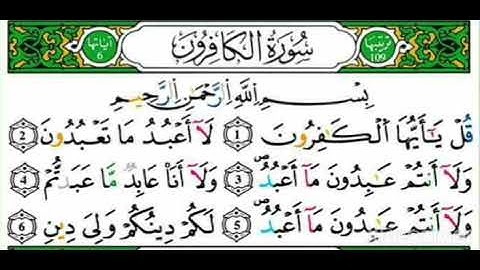 ترتيبها 109 سُورَةُ الْكَافِرُونَ آيَاتُهَا 6
بِسْمِ اللَّهِ الرَّحْمَٰنِ الرَّحِيمِ
قُلْ يَٰٓأَيُّهَا الْكَٰفِرُونَ 1 لَآ أَعْبُدُ مَا تَعْبُدُونَ 2
وَلَآ أَنتُمْ عَٰبِدُونَ مَآ أَعْبُدُ 3 وَلَآ أَنَا۠ عَابِدٌ مَّا عَبَدتُّمْ 4
وَلَآ أَنتُمْ عَٰبِدُونَ مَآ أَعْبُدُ 5 لَكُمْ دِينُكُمْ وَلِيَ دِينِ 6